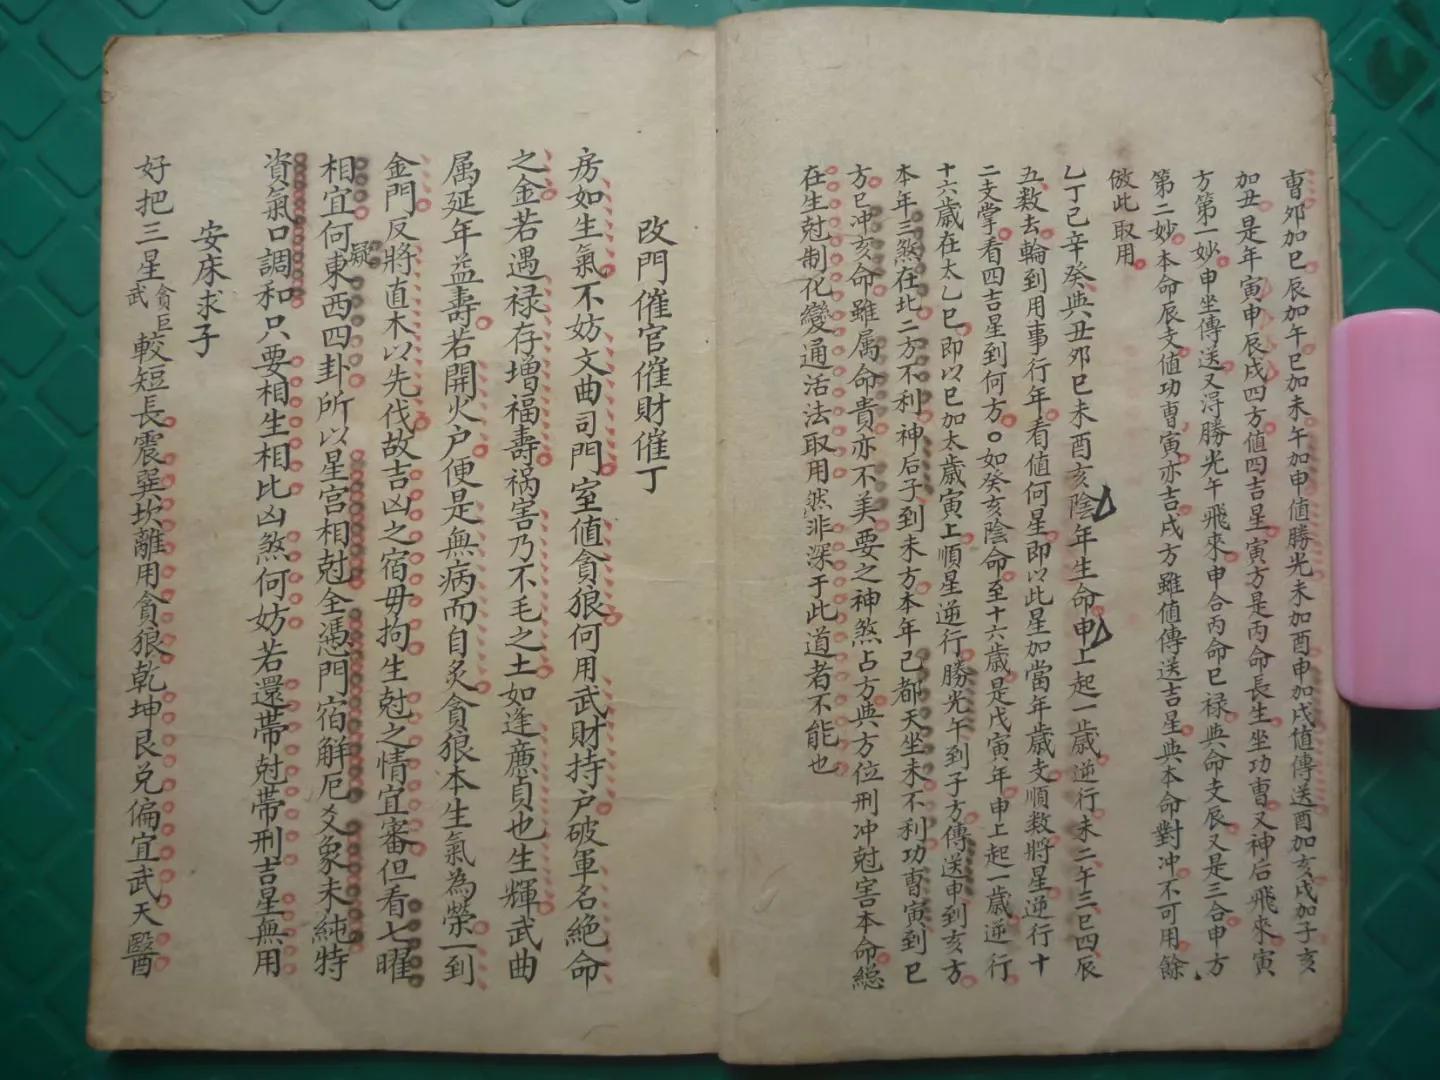 曺夘加巳辰加午巳加未午加申值勝光未加酉申加戌值傳送酉加亥戌加子亥
加丑是年寅申辰戌四方值四吉星寅方是丙命長生坐功曺又神后飛來寅
方第一妙申坐傳送又淂勝光午飛來申合丙命巳禄與命支辰又是三合申方
第二妙本命辰支值功曺寅亦吉戌方雖值傳送吉星與本命對冲不可用餘
倣此取用
乙丁己辛癸與丑夘巳未酉亥陰年生命申上起一歲逆行未二午三巳四辰
五数去輪到用事行年看值何星即以此星加當年歲支順数將星逆行十
二支掌看四吉星到何方〇如癸亥陰命至十六歲是戊寅年申上起一歲逆行
十六歲在太乙巳即以巳加太歲寅上順星逆行勝光午到子方傳送申到亥方
本年三煞在北二方不利神后子到未方本年己都天坐未不利功曺寅到巳
方巳冲亥命雖属命貴亦不美要之神煞占方與方位刑冲尅害本命緫
在生尅制化變通活法取用然非深于此道者不能也
改門催官催財催丁
房如生氣不妨文曲司門室值貪狼何用武財持户破軍名絶命
之金若遇禄存增福壽禍害乃不毛之土如逢廉貞也生輝武曲
属延年益壽若開火户便是無病而自炙貪狼本生氣為榮一到
金門反將直木以先伐故吉凶之宿毋拘生尅之情宜審但看七曜
相宜何凝東西四卦所以星宮相尅全憑門宿解厄爻象未純特
資氣口調和只要相生相比凶煞何妨若還帶尅帶刑吉星無用
安床求子
好把三星貪巨武較短長震巽坎離用貪狼乾坤艮兑偏宜武天醫